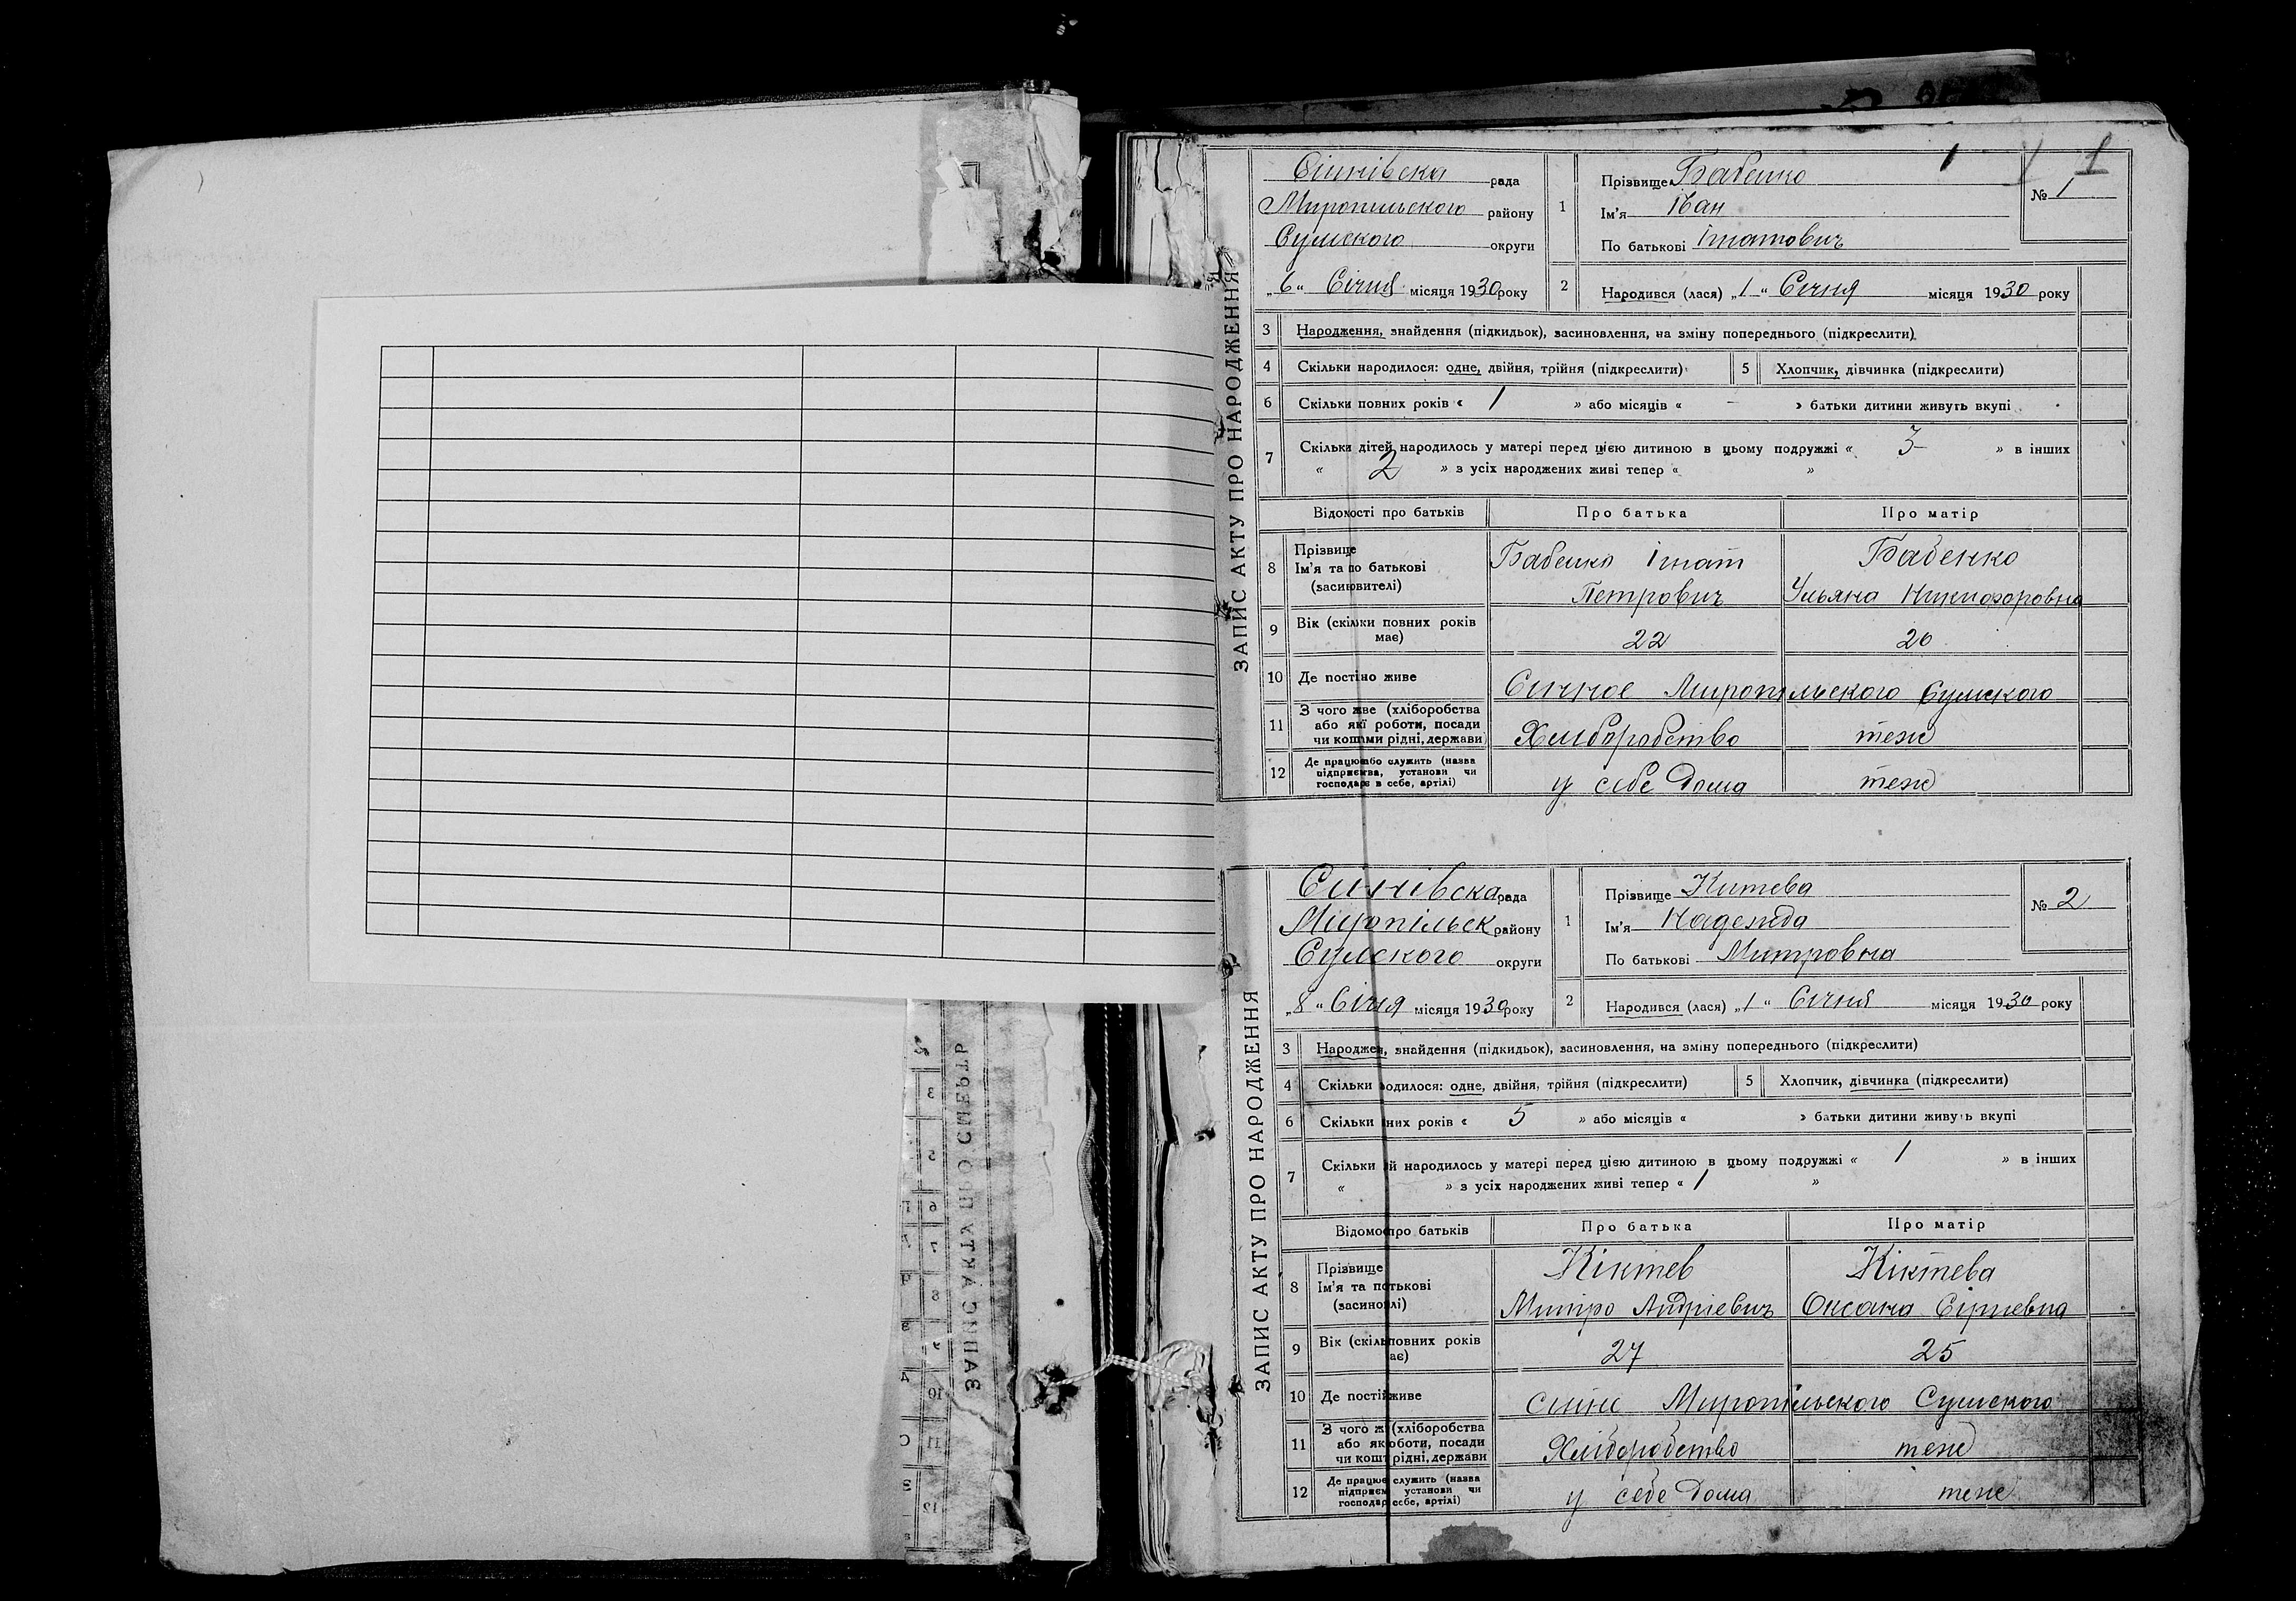 1
1
ЗАПИС АКТУ ПРО НАРОДЖЕННЯ
Сіннівска рада
Миропильского району
Сумского округи
„6“ Січня місяця 1930 року
1
Прізвище Бабенко
Ім'я Іван
По батькові Ігнатович
№ 1
2
Народився (лася) „1“ Січня місяця 1930 року
3 Народження, знайдення (підкидьок), засиновлення, на зміну попереднього (підкреслити).
4 Скільки народилося: одне, двійня, трійня (підкреслити) 5 Хлопчик, дівчинка (підкреслити)
6 Скільки повних років « 1 » або місяців « — » батьки дитини живуть вкупі
7 Скільки дітей народилось у матері перед цією дитиною в цьому подружжі « 3 » в інших
« 2 » з усіх народжених живі тепер « »
Відомості про батьків Про батька Про матір
8 Прізвище
Ім'я та по батькові
(засиновителі)
Бабенко Ігнат
Петрович
Бабенко
Ульяна Никифоровна
9 Вік (скільки повних років
має)
22 26
10 Де постіно живе Синное Миропильского Сумского
11 З чого жве (хліборобства
або які роботи, посади
чи коштами рідні, держави
Хлиборобство теж
12 Де працює або служить (назва
підприємства, установи чи
господаре в себе, артілі)
у себе Дома теж
ЗАПИС АКТУ ПРО НАРОДЖЕННЯ
Синівска рада
Миропільск району
Сумского округи
„8“ Січня місяця 1930 року
1
Прізвище Китева
Ім'я Надежда
По батькові Митровна
№ 2
2
Народився (лася) „1“ Січня місяця 1930 року
3 Народжен, знайдення (підкидьок), засиновлення, на зміну попереднього (підкреслити)
4 Скільки родилося: одне, двійня, трійня (підкреслити) 5 Хлопчик, дівчинка (підкреслити)
6 Скільки них років « 5 » або місяців « » батьки дитини живуть вкупі
7 Скільки й народилось у матері перед цією дитиною в цьому подружжі « 1 » в інших
« » з усіх народжених живі тепер « 1 »
Відомо про батьків Про батька Про матір
8 Прізвище
Ім'я та потькові
(засинові)
Кіктев
Митро Андріевич
Кіктева
Оксана Сіргиевна
9 Вік (скільповних років
ає)
27 25
10 Де постійживе синне Миропільского Сумского
11 З чого ж (хліборобства
або як оботи, посади
чи кошт рідні, держави
Хліборобство теж
12 Де працює служить (назва
підприєм установи чи
господар себе, артілі)
у себе Дома теж
ЗАПИС АКТУ ПРО СМЕРТЬ